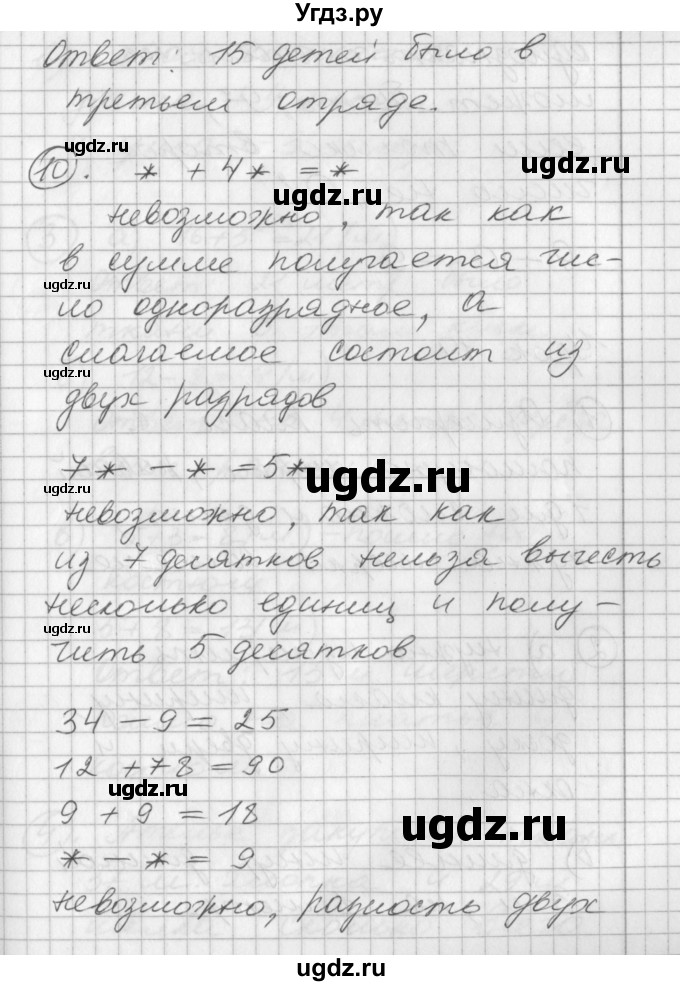 Угдз.ру
Ответ: 15 детей было в
третьем отряде.
ugdz.ru
ugdz.ru
10. * + 4* = *
ugdz.ru
невозможно, так как
в сумме получается чис-
ugdz.ru
ло одноразрядное, а
слагаемое состоит из
ugdz.ru
двух разрядов
7* - * = 5*
ugdz.ru
ugdz.ru
невозможно, так как
из 7 десятков нельза вычесть
несколько единиц и полу-
ugdz.ru
чить 5 десятков
34 - 9 = 25
12 + 78 = 90
9 + 9 = 18
ugdz.ru
* - * = 9
невозможно, разность двух
ugdz.ru